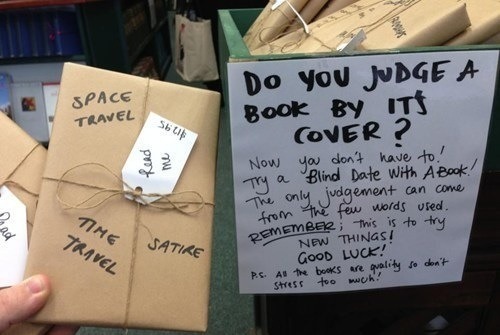 SPACE
TRAVEL
Read
me
TIME
TRAVEL
SATIRE
Read
DO YOU JUDGE A
BOOK BY ITS
COVER?
Now you don't have to!
Try a Blind Date With A Book!
The only judgement can come
from the few words used.
REMEMBER; this is to try
NEW THINGS!
GOOD LUCK!
P.S. All the books are quality so don't
stress too much!